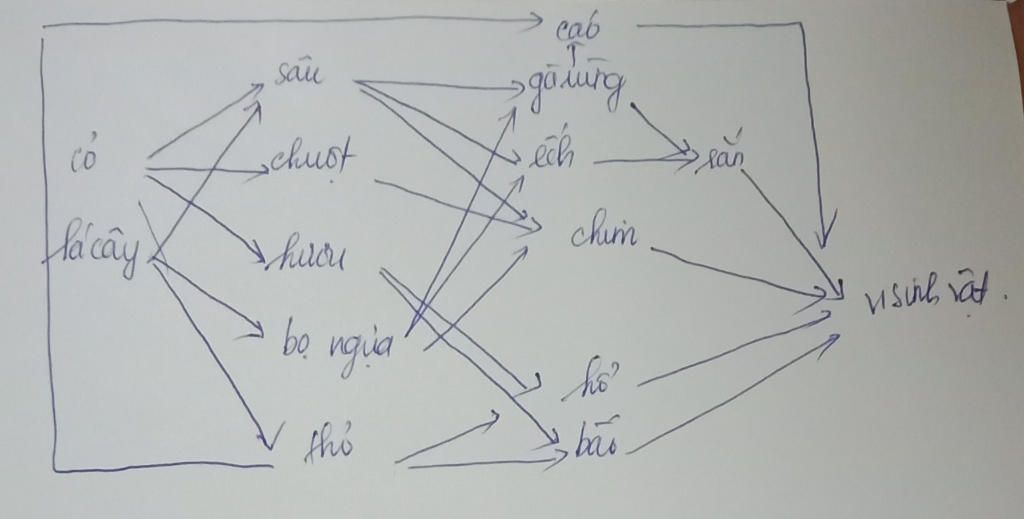 cáo
sâu
gà rừng
cỏ
chuột
ếch
rắn
lá cây
hươu
chim
vi sinh vật.
bọ ngựa
hổ
thỏ
báo